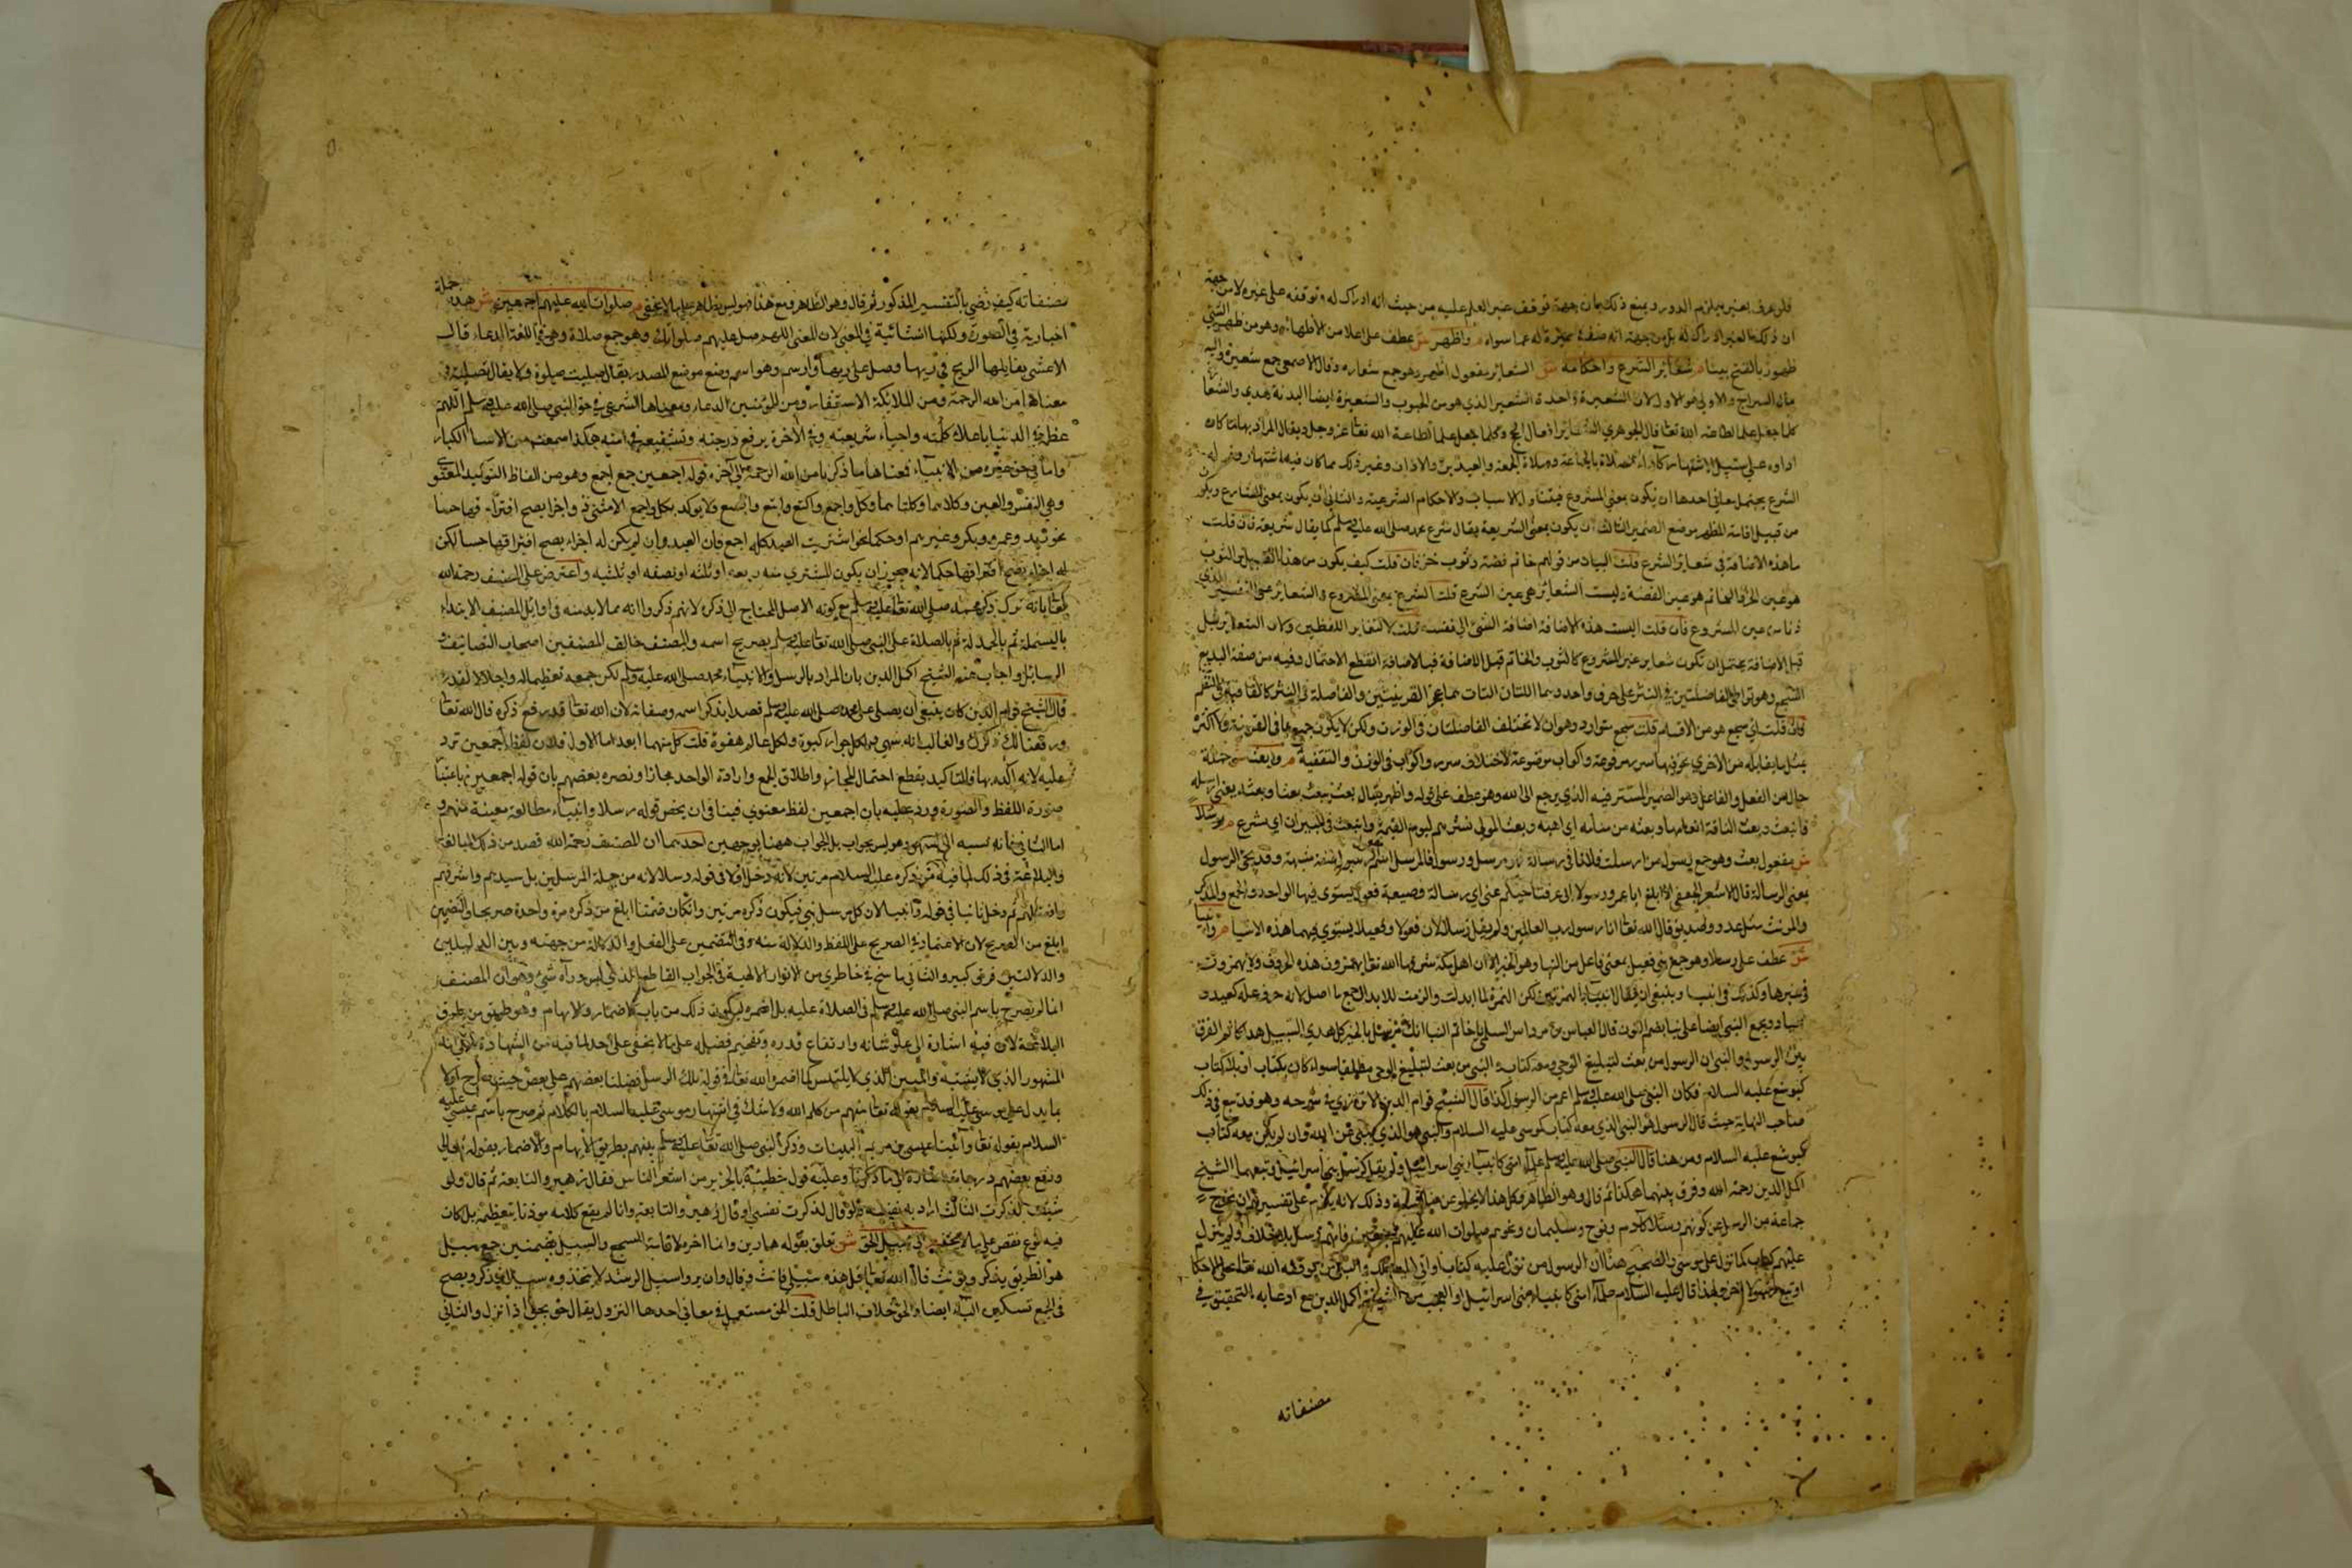 فلو عرف العلم بغيره يلزم الدور ويمنع ذلك بان جهة توقف غير العلم عليه من حيث انه ادراك له وتوقفه على غيره لا من جهة
ان ذلك الغير ادراك له بل من جهة انه صفة مميزة له عما سواه م واظهر ش عطف على اعلا من الاظهار وهو من ظهر الشئ
ظهورا بالفتح بينا م شعائر الشرع واحكامه ش الشعائر مفعول اظهر وهو جمع شعاره وقال الاصمعي جمع شعيرة واليه
مال السراج والاولى هو الاول لان الشعيرة واحدة الشعير الذي هو من الحبوب والشعيرة ايضا البدنة تهدى والشعائر
كلما جعل علما لطاعة الله تعا قال الجوهري الشعائر اعمال الحج وكلما جعل علما لطاعة الله تعا عز وجل ويقال المراد بها ما كان
اداوه على سبيل الاشتهار كاداء الصلاة بالجماعة وصلاة الجمعة والعيدين والاذان وغير ذلك مما كان فيه اشتهار وقوله
الشرع يحتمل معاني احدها ان يكون بمعنى المشروع فيتناول الاسباب والاحكام الشرعية والثاني ان يكون بمعنى الشارع ويكون
من قبيل اقامة المظهر موضع الضمير الثالث ان يكون بمعنى الشريعة يقال شرع محمد صلى الله عليه وسلم كما يقال شريعة فان قلت
ما هذه الاضافة في شعائر الشرع قلت البيان من قولهم خاتم فضة وثوب خز فان قلت كيف يكون من هذا القبيل والثوب
هو عين الخز والخاتم هو عين الفضة وليست الشعائر هي عين الشرع قلت الشرع بمعنى المشروع والشعائر على التفسير الذي
ذكرناه عين المشروع فان قلت اليست هذه الاضافة اضافة الشئ الى نفسه قلت لا لتغاير اللفظين وكان الشعائر قبل
قبل الاضافة يحتمل ان تكون شعاير غير المشروع كالثوب والخاتم قبل الاضافة فبالاضافة انقطع الاحتمال وفيه من صنعة البديع
السجع وهو تواطئ الفاصلتين في النثر على حرف واحد وهما اللتان عجز القرينتين والفاصلة في النثر كالقافية في النظم
فان قلت اي سجع هو من الاقسام قلت سجع متوازن وهو ان لا تختلف الفاصلتان في الوزن ولكن لا يكون جميع ما في القرينة ولا اكثره
مثل ما يقابله من الاخرى نحو فيها سرر مرفوعة واكواب موضوعة لاختلاف سرر واكواب في الوزن والتقفية م وبعث ش جملة
حال من الفعل والفاعل وهو الضمير المستتر فيه الذي يرجع الى الله وهو عطف على قوله واظهر يقال بعث يبعث بعثا وبعثه بمعنى ارسله
فانبعث وبعث الناقة اثارها وبعثه من منامه اي اهبه وبعث الموتى نشرهم ليوم القيمة وانبعث في السير اي اسرع م رسلا
ش مفعول بعث وهو جمع رسول من ارسلت فلانا في رسالة فهو مرسل ورسول
بمعنى الرسالة قال الاسعر الجعفي الا ابلغ ابا عمرو رسولا اي رسالة وصيغة فعول يستوي فيها الواحد والجمع والمذكر
والمونث مثل عدو وصديق قال الله تعا انا رسول رب العالمين ولم يقل رسلا لان فعولا وفعيلا يستوي فيهما هذه الاشيا م وانبيا
ش عطف على رسلا وهو جمع نبي فعيل بمعنى فاعل من النبا وهو الخبر الا ان اهل مكة شرفها الله تعا يهمزون هذه الحروف ولا يهمزون
في غيرها وكذلك في انبيا وينبغي ان يقال انبئاء بالهمزتين لكن الهمزة لما ابدلت والزمت للابدال جمع ما اصل لامه حرف علة كعيد و
اعياد ويجمع النبي ايضا على نبا بضم النون قال العباس بن مرداس السلمي يا خاتم النبا انك مرسل بالخير كل هدي السبيل هداكا ثم الفرق
بين الرسول والنبي ان الرسول من بعث لتبليغ الوحي ومعه كتاب والنبي من بعث لتبليغ الوحي مطلقا سواء كان بكتاب او بلا كتاب
كيوشع عليه السلام فكان النبي صلى الله عليه وسلم اعم من الرسول كذا قال الشيخ قوام الدين الاترازي في شرحه وهو قد تبع في ذلك
صاحب النهاية حيث قال الرسول هو النبي الذي معه كتاب كموسى عليه السلام والنبي هو الذي ينبئ عن الله وان لم يكن معه كتاب
كيوشع عليه السلام ومن هنا قال النبي صلى الله عليه وسلم علماء امتى كانبياء بني اسرائيل ولم يقل كرسل بني اسرائيل وتبعهما الشيخ
اكمل الدين رحمه الله وفرق بينهما هكذا ثم قال وهو الظاهر وكل هذا لا يخلو عن مناقشة وذلك لانه يلزم على تفسيرهم ان يخرج
جماعة من الرسل عن كونهم رسلا كآدم ونوح وسليمان وغيرهم صلوات الله عليهم اجمعين فانهم رسل بلا خلاف ولم ينزل
عليهم كتاب كما نزل على موسى والصحيح هنا ان الرسول من نزل عليه كتاب او اتى اليه ملك والنبي من يوقفه الله تعالى على الاحكام
او تبع رسولا اخر ولهذا قال عليه السلام علماء امتى كانبياء بني اسرائيل والعجب من الشيخ اكمل الدين مع ادعايه التحقيق في
مصنفاته
مصنفاته كيف رضي بالتفسير المذكور ثم قال وهو الظاهر ومع هذا هو ليس بظاهر على ما لا يخفى م صلوات الله عليهم اجمعين ش هذه جملة
اخبارية في الصورة ولكنها انشائية في المعنى لان المعنى اللهم صل عليهم صلواتك وهو جمع صلاة وهي في اللغة الدعاء قال
الاعشى يقابلها الريح في دنها وصلى على دنها وارتسم وهو اسم وضع موضع المصدر يقال صليت صلوة ولا يقال تصلية و
معناها من الله الرحمة ومن الملائكة الاستغفار ومن المؤمنين الدعاء ومعناها الشرعي في حق النبي صلى الله عليه وسلم اللهم
عظمه في الدنيا باعلاء كلمته واحياء شريعته وفي الاخرة برفع درجته وتشفيعه في امته هكذا سمعت من الاساتذة الكبار
واما في حق غيره من الانبياء فمعناها ما ذكرنا من الله الرحمة الى آخره قوله اجمعين جمع اجمع وهو من الفاظ التوكيد المعنوى
وهي النفس والعين وكلاهما وكلتاهما وكل واجمع واكتع وابتع وابصع ولا يوكد بكل واجمع الا شئ ذو اجزا يصح افتراقها حسا
نحو زيد وعمرو وبكر وغيرهم او حكما نحو اشتريت العبد كله اجمع فان العبد وان لم يكن له اجزاء يصح افتراقها حسا لكن
له اجزاء يصح افتراقها حكما لانه يجوز ان يكون المشتري منه ربعه او ثلثه او نصفه او ثلثيه واعترض على المصنف رحمه الله
تعا بانه ترك ذكر محمد صلى الله تعا عليه وسلم مع كونه الاصل المحتاج الى ذكره لانهم ذكروا انه مما لا بد منه في اوايل المصنف الابتداء
بالبسملة ثم بالحمدلة ثم بالصلاة على النبي صلى الله تعا عليه وسلم بصريح اسمه والمصنف خالف المصنفين اصحاب التصانيف و
الرسايل واجاب عنه الشيخ اكمل الدين بان المراد بالرسل والانبياء محمد صلى الله عليه وسلم لكن جمعه تعظيما له واجلالا لقدره
قال الشيخ قوام الدين كان ينبغي ان يصلى على محمد صلى الله عليه وسلم قصدا بذكر اسمه وصفاته لان الله تعا قد رفع ذكره قال الله تعا
ورفعنا لك ذكرك والغالب انه سهي ولكل جواد كبوة ولكل عالم هفوة قلت كل منهما ابعد اما الاول فلان لفظ اجمعين ترد
عليه لانه اكده بها فالتاكيد يقطع احتمال المجاز واطلاق الجمع وارادة الواحد مجاز ونصره بعضهم بان قوله اجمعين باعتبار
صورة اللفظ والصورة ورد عليه بان اجمعين لفظ معنوي فينافي ان يخص قوله رسلا وانبياء
اما الثاني فانه نسبه الى السهو وهو ليس بجواب بل الجواب ههنا بوجهين احدهما ان المصنف رحمه الله قصد من ذلك المبالغة
والبلاغة في ذلك لما فيه من ذكره عليه السلام مرتين لانه دخل اولا في قوله رسلا لانه من جملة المرسلين بل سيدهم واشرفهم
وافضلهم ثم دخل ثانيا في قوله وانبيا لان كل مرسل نبي فيكون ذكره مرتين وان كان ضمنا ابلغ من ذكره مرة واحدة صريحا والتضمين
ابلغ من الصريح لان الاعتماد في الصريح على اللفظ والدلالة منه وفي التضمين على الفعل والدلالة من جهته وبين الدليلين
والدلالتين فرق كبير والثاني ما سنح في خاطري من الانوار الالهية في الجواب القاطع الذي ليس وراه شئ وهو ان المصنف
انما لم يصرح باسم النبي صلى الله عليه وسلم في الصلاة عليه بل اضمره ليكون ذلك من باب الاضمار والابهام وهو طريق من طرق
البلاغة لان فيه اشارة الى علو شانه وارتفاع قدره وتفخيم فضيله على ما لا يخفى على احد لما فيه من الشهادة على انه
المشهور الذي لا يشتبه والمبين الذي لا يلتبس كما اضمر الله تعا في قوله تلك الرسل فضلنا بعضهم على بعض حيث صرح اولا
بما يدل على موسى عليه السلام بقوله تعا منهم من كلم الله ولا شك في اشتهار موسى عليه السلام بالكلام ثم صرح باسم عيسى عليه
السلام بقوله تعا وآتينا عيسى بن مريم البينات وذكر النبي صلى الله تعا عليه وسلم بينهم بطريق الابهام والاضمار بقوله تعالى
ورفع بعضهم درجات اشارة الى ما ذكرنا وعليه قول حطيئة بالخبر من اشعر الناس فقال زهير والنابعة ثم قال ولو
شئت لذكرت الثالث اراد به نفسه ولو قال لذكرت نفسي او قال زهير والنابعة وانا لم يقع كلامه موذنا بتعظيمه بل كان
فيه نوع نقص على ما لا يخفى م الى سبيل الحق ش تعلق بقوله هادين وانما اخره لاقامة السجع والسبل بضمتين جمع سبيل
هو الطريق يذكر ويونث قال الله تعا قل هذه سبيلي فانث وقال وان يروا سبيل الرشد لا يتخذوه سبيلا فذكر ويصح
في الجمع تسكين الباء ايضا والحق خلاف الباطل قلت الحق مستعمل في معاني احدها النزول يقال حق يحق اذا نزل والثاني